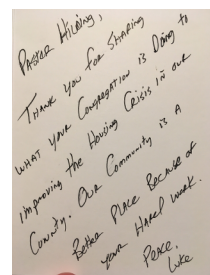 Pastor Hilding,
Thank you for sharing
what your congregation is doing to
improving the housing crisis in our
county. Our community is a
better place because of
your hard work.
Peace,
Luke